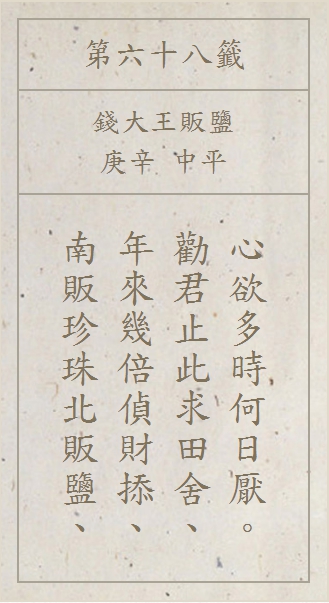 第六十八籤
錢大王販鹽
庚辛 中平
南販珍珠北販鹽、
年來幾倍偵財掭、
勸君止此求田舍、
心欲多時何日厭。